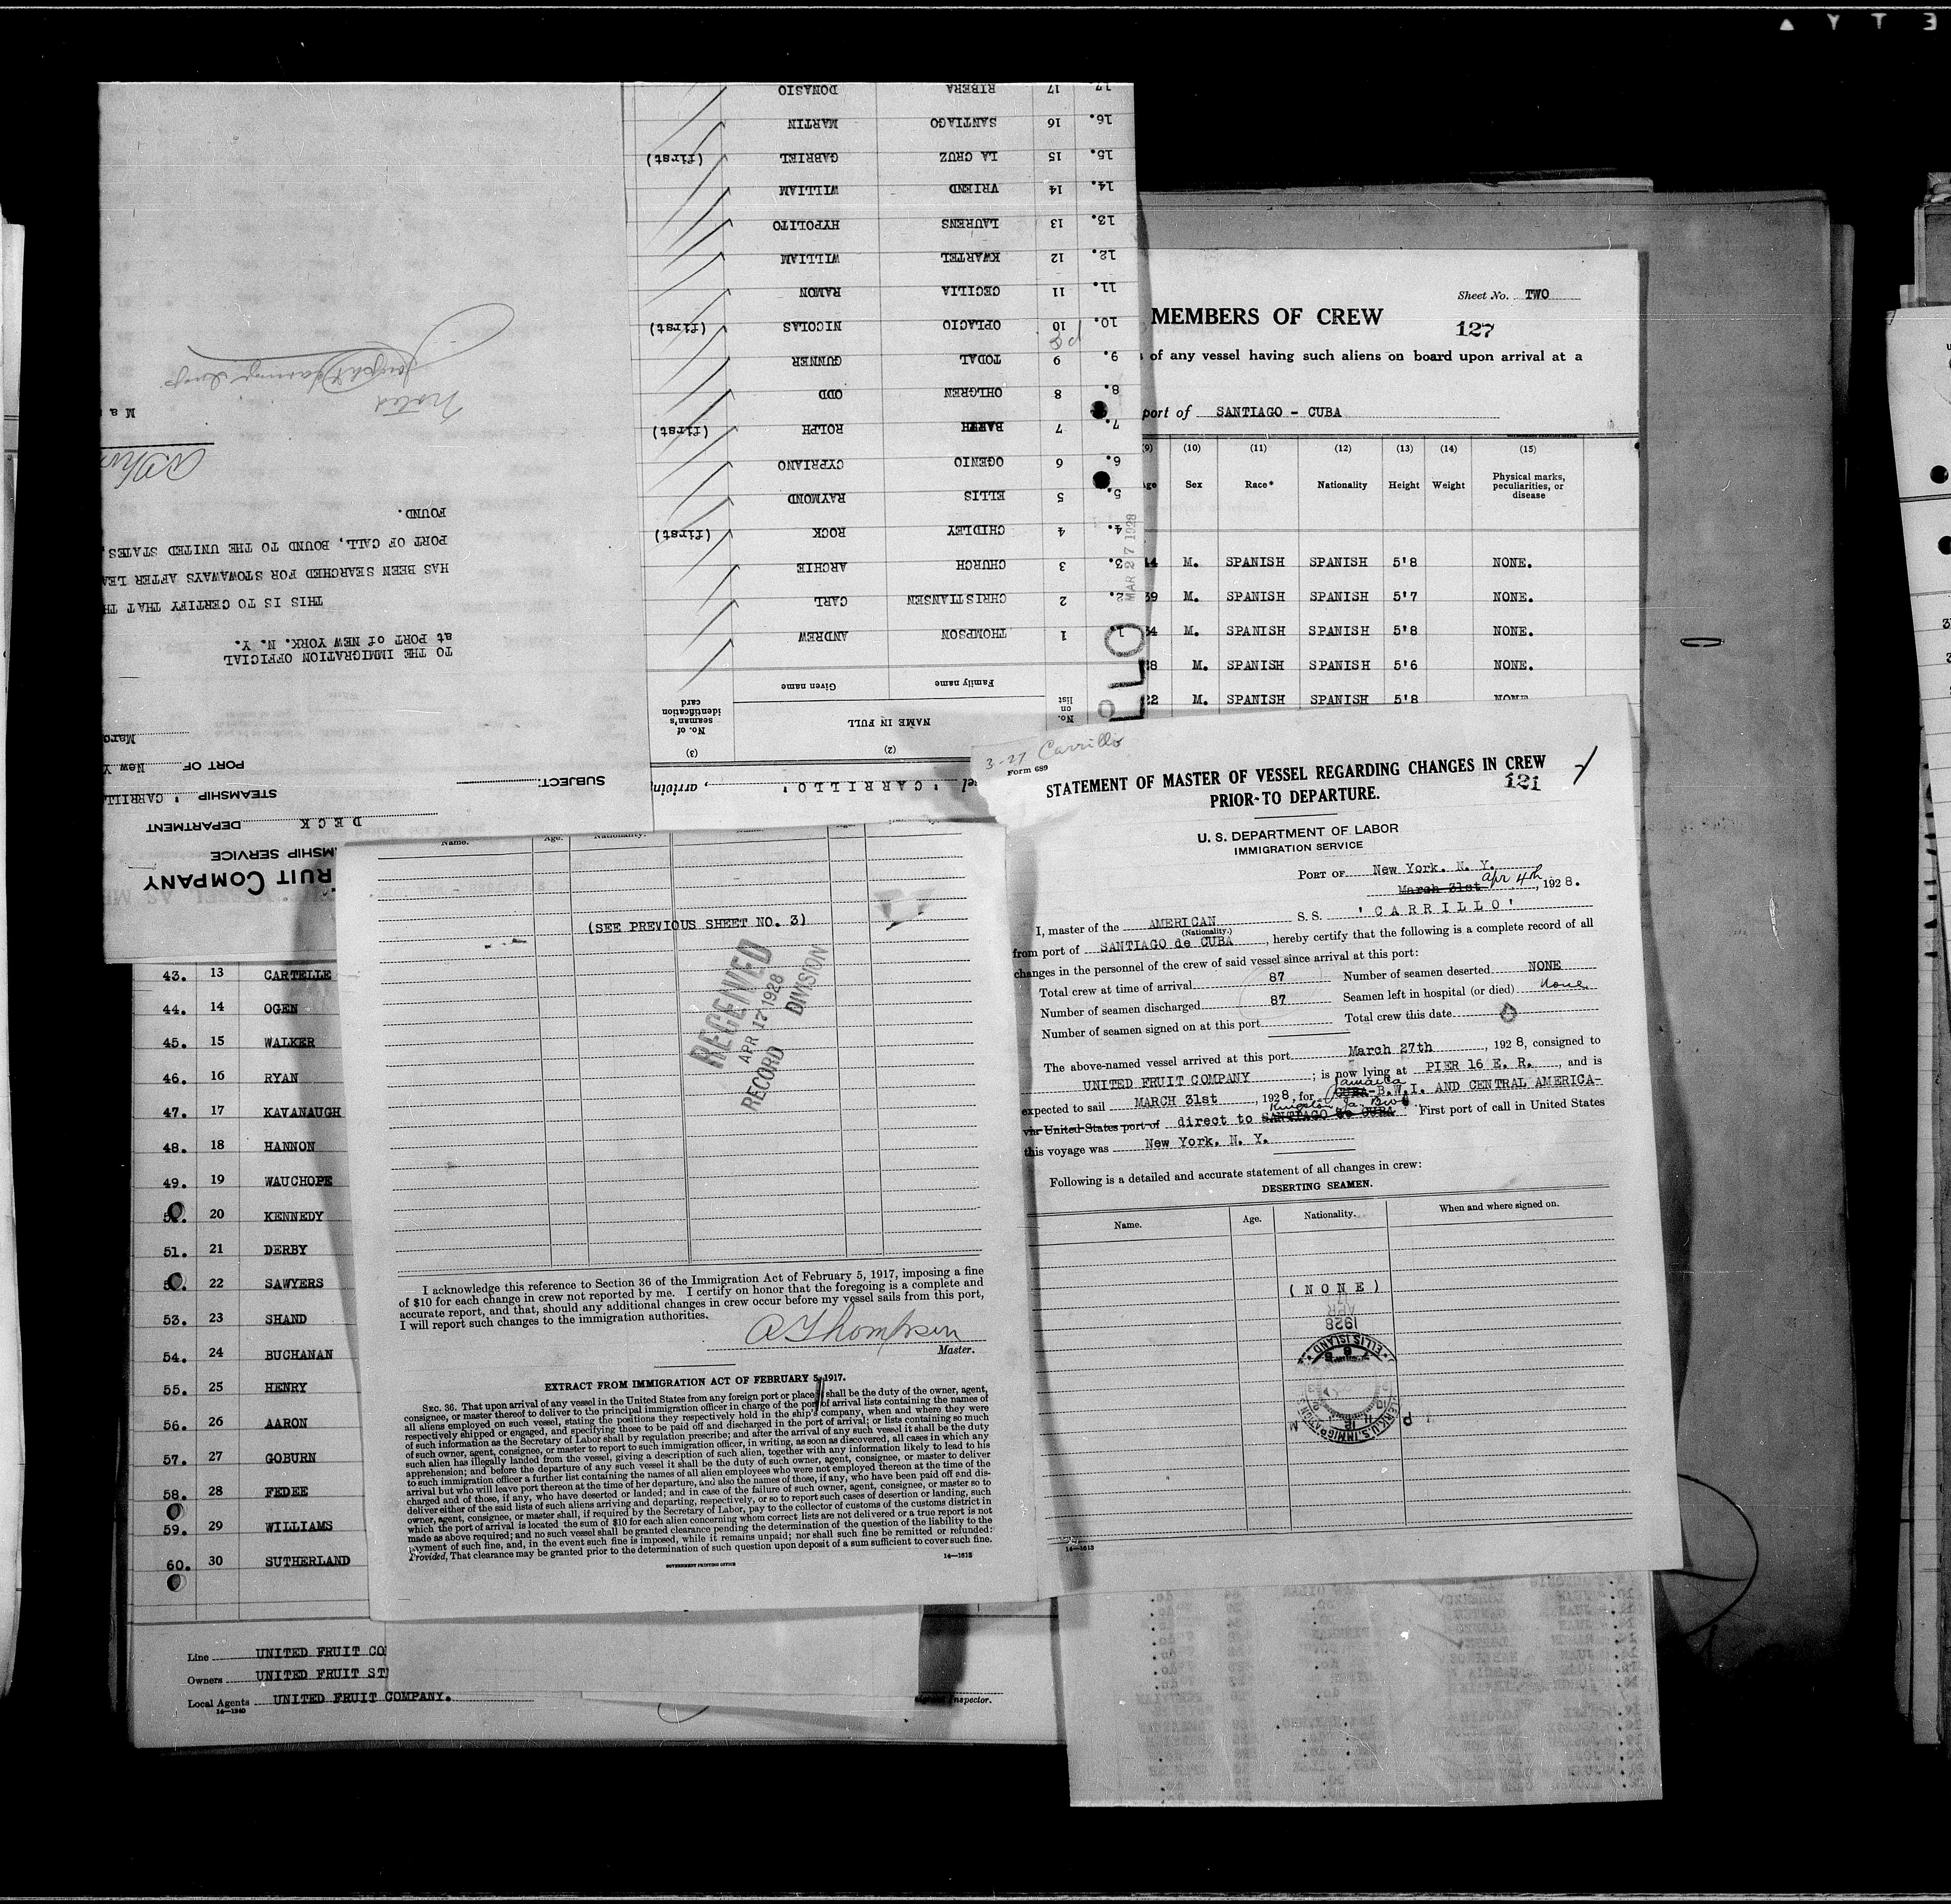 SAFETY
TO THE IMMIGRATION OFFICIAL
at PORT of NEW YORK. N. Y.
THIS IS TO CERTIFY THAT
HAS BEEN SEARCHED FOR STOWAWAYS AFTER
PORT OF CALL, BOUND TO THE UNITED STATES,
FOUND.
Noted
FRUIT COMPANY
STEAMSHIP SERVICE
DECK DEPARTMENT
STEAMSHIP 'CARRILL
PORT OF New Y
SUBJECT:
'CARRILLO' , arrivin
(2) (3)
No. on list NAME IN FULL No. of seaman's identification card
Family name Given name
1. 1 THOMPSON ANDREW
2. 2 CHRISTIANSEN CARL
3. 3 CHURCH ARCHIE
4. 4 CHIDLEY ROCK (first)
5. 5 ELLIS RAYMOND
6. 6 OGENIO CYPRIANO
7. 7 ROLPH (first)
8. 8 OHLGREN ODD
9. 9 TODAL GUNNER
10. 10 OPLACIO NICOLAS (first)
11. 11 CECILIA RAMON
12. 12 KWARTEL WILLIAM
13. 13 LAURENS HYPOLITO
14. 14 VRIEND WILLIAM
15. 15 LA CRUZ GABRIEL (first)
16. 16 SANTIAGO MARTIN
17. 17 RIBERA DONASIO
MAR 27 1928
Sheet No. TWO
MEMBERS OF CREW
127
of any vessel having such aliens on board upon arrival at a
port of SANTIAGO - CUBA
(9) (10) (11) (12) (13) (14) (15)
Age Sex Race* Nationality Height Weight Physical marks, peculiarities, or disease
44 M. SPANISH SPANISH 5'8 NONE.
39 M. SPANISH SPANISH 5'7 NONE.
34 M. SPANISH SPANISH 5'8 NONE.
28 M. SPANISH SPANISH 5'6 NONE.
22 M. SPANISH SPANISH 5'8 NONE
43. 13 CARTELLE
44. 14 OGEN
45. 15 WALKER
46. 16 RYAN
47. 17 KAVANAUGH
48. 18 HANNON
49. 19 WAUCHOPE
20 KENNEDY
51. 21 DERBY
22 SAWYERS
53. 23 SHAND
54. 24 BUCHANAN
55. 25 HENRY
56. 26 AARON
57. 27 GOBURN
58. 28 FEDEE
59. 29 WILLIAMS
60. 30 SUTHERLAND
Line UNITED FRUIT CO
Owners UNITED FRUIT ST
Local Agents UNITED FRUIT COMPANY.
14—1240
Inspector.
Name. Age. Nationality.
(SEE PREVIOUS SHEET NO. 3)
RECEIVED
APR 17 1928
RECORD DIVISION
I acknowledge this reference to Section 36 of the Immigration Act of February 5, 1917, imposing a fine
of $10 for each change in crew not reported by me. I certify on honor that the foregoing is a complete and
accurate report, and that, should any additional changes in crew occur before my vessel sails from this port,
I will report such changes to the immigration authorities.
A Thompson
Master.
EXTRACT FROM IMMIGRATION ACT OF FEBRUARY 5, 1917.
SEC. 36. That upon arrival of any vessel in the United States from any foreign port or place it shall be the duty of the owner, agent,
consignee, or master thereof to deliver to the principal immigration officer in charge of the port of arrival lists containing the names of
all aliens employed on such vessel, stating the positions they respectively hold in the ship's company, when and where they were
respectively shipped or engaged, and specifying those to be paid off and discharged in the port of arrival; or lists containing so much
of such information as the Secretary of Labor shall by regulation prescribe; and after the arrival of any such vessel it shall be the duty
of such owner, agent, consignee, or master to report to such immigration officer, in writing, as soon as discovered, all cases in which any
such alien has illegally landed from the vessel, giving a description of such alien, together with any information likely to lead to his
apprehension; and before the departure of any such vessel it shall be the duty of such owner, agent, consignee, or master to deliver
to such immigration officer a further list containing the names of all alien employees who were not employed thereon at the time of the
arrival but who will leave port thereon at the time of her departure, and also the names of those, if any, who have been paid off and dis-
charged and of those, if any, who have deserted or landed; and in case of the failure of such owner, agent, consignee, or master so to
deliver either of the said lists of such aliens arriving and departing, respectively, or so to report such cases of desertion or landing, such
owner, agent, consignee, or master shall, if required by the Secretary of Labor, pay to the collector of customs of the customs district in
which the port of arrival is located the sum of $10 for each alien concerning whom correct lists are not delivered or a true report is not
made as above required; and no such vessel shall be granted clearance pending the determination of the question of the liability to the
payment of such fine, and, in the event such fine is imposed, while it remains unpaid; nor shall such fine be remitted or refunded:
Provided, That clearance may be granted prior to the determination of such question upon deposit of a sum sufficient to cover such fine.
GOVERNMENT PRINTING OFFICE
14—1613
3-27 Carrillo
Form 689
STATEMENT OF MASTER OF VESSEL REGARDING CHANGES IN CREW
PRIOR TO DEPARTURE.
121
U. S. DEPARTMENT OF LABOR
IMMIGRATION SERVICE
PORT OF New York. N. Y.
March 31st Apr 4th, 1928.
I, master of the AMERICAN S. S. 'CARRILLO'
(Nationality.)
from port of SANTIAGO de CUBA, hereby certify that the following is a complete record of all
changes in the personnel of the crew of said vessel since arrival at this port:
Total crew at time of arrival 87 Number of seamen deserted NONE
Number of seamen discharged 87 Seamen left in hospital (or died) None
Number of seamen signed on at this port Total crew this date 0
The above-named vessel arrived at this port March 27th, 1928, consigned to
UNITED FRUIT COMPANY; is now lying at PIER 16 E. R., and is
expected to sail MARCH 31st, 1928, for Jamaica CUBA-B.W.I. AND CENTRAL AMERICA-
via United States port of direct to SANTIAGO de CUBA Kingston Ja. BWI First port of call in United States
this voyage was New York. N. Y.
Following is a detailed and accurate statement of all changes in crew:
DESERTING SEAMEN.
Name. Age. Nationality. When and where signed on.
(NONE)
APR
1928
ELLIS ISLAND
CLERK U.S. IMMIGRATION
14—1613